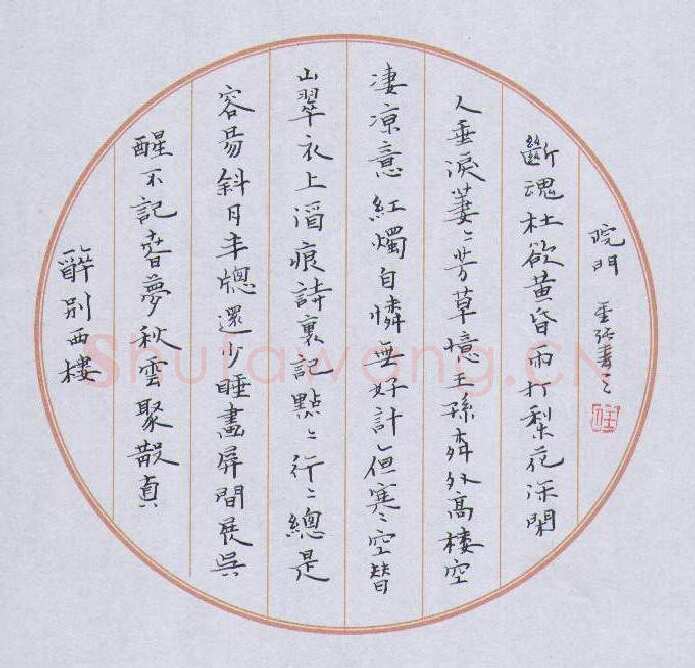 醉别西樓
醒不記春夢秋雲聚散貞
容易斜月半牕還少睡畫屏間展吳
山翠衣上酒痕詩裏記點〻行〻總是
凄凉意紅燭自憐無好計但寒〻空替
人垂淚萋〻芳草憶王孫柳外高樓空
斷魂杜欲黄昏雨打梨花深閉
院門 張書之
Shufawang.CN